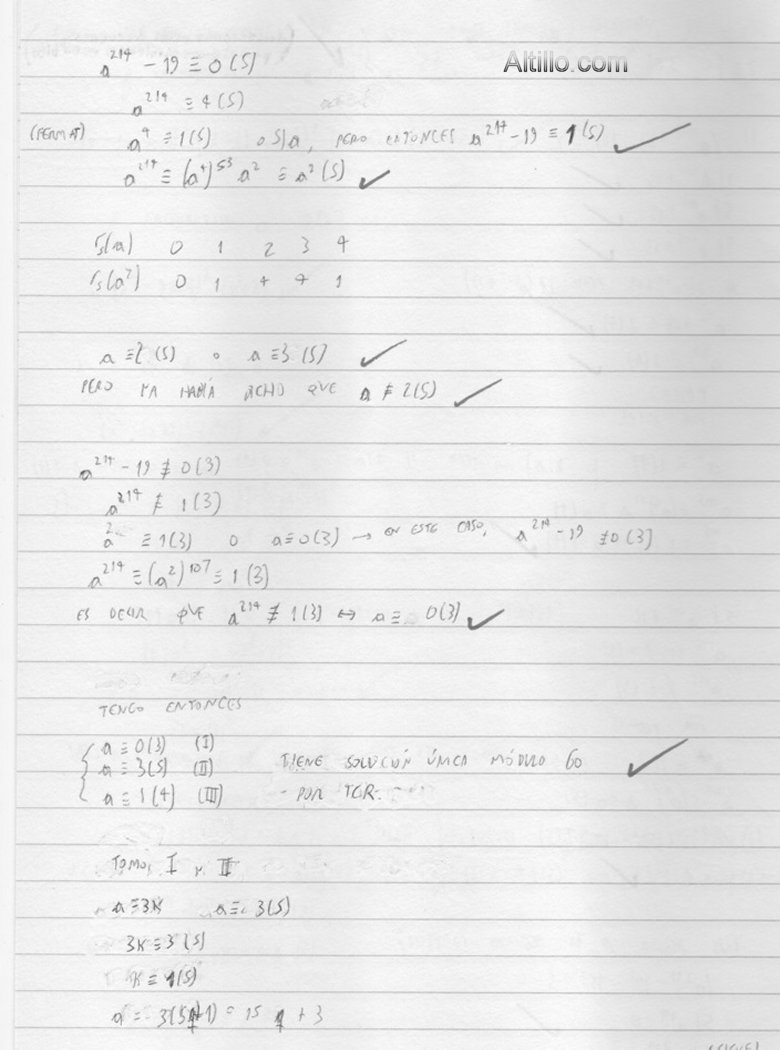 Altillo.com
a²¹⁴ - 19 ≡ 0 (5)
a²¹⁴ ≡ 4 (5)
(FERMAT) a⁴ ≡ 1 (5) o 5|a, PERO ENTONCES a²¹⁴ - 19 ≡ 1 (5)
a²¹⁴ ≡ (a⁴)⁵³ a² ≡ a² (5)
r₅(a) 0 1 2 3 4
r₅(a²) 0 1 4 4 1
a ≡ 2 (5) o a ≡ 3 (5)
PERO YA HABÍA DICHO QUE a ≢ 2 (5)
a²¹⁴ - 19 ≢ 0 (3)
a²¹⁴ ≢ 1 (3)
a² ≡ 1 (3) o a ≡ 0 (3) → EN ESTE CASO, a²¹⁴ - 19 ≢ 0 (3)
a²¹⁴ ≡ (a²)¹⁰⁷ ≡ 1 (3)
ES DECIR QUE a²¹⁴ ≢ 1 (3) ↔ a ≡ 0 (3)
TENGO ENTONCES
a ≡ 0 (3) (I)
a ≡ 3 (5) (II) TIENE SOLUCIÓN ÚNICA MÓDULO 60
a ≡ 1 (4) (III) - POR TCR. -
TOMO, I y II
a = 3K a ≡ 3 (5)
3K ≡ 3 (5)
K ≡ 1 (5)
a = 3(5q+1) = 15 q + 3